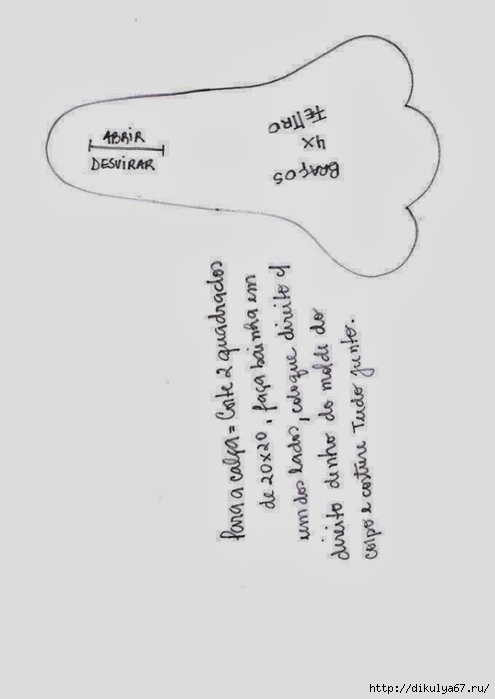 ABRIR
DESVIRAR
BRAÇOS
4x
FELTRO
Para a calça = Corte 2 quadrados
de 20x20, faça bainha em
um dos lados, coloque direito c/
direito dentro do molde do
corpo e costure Tudo junto.
http://dikulya67.ru/